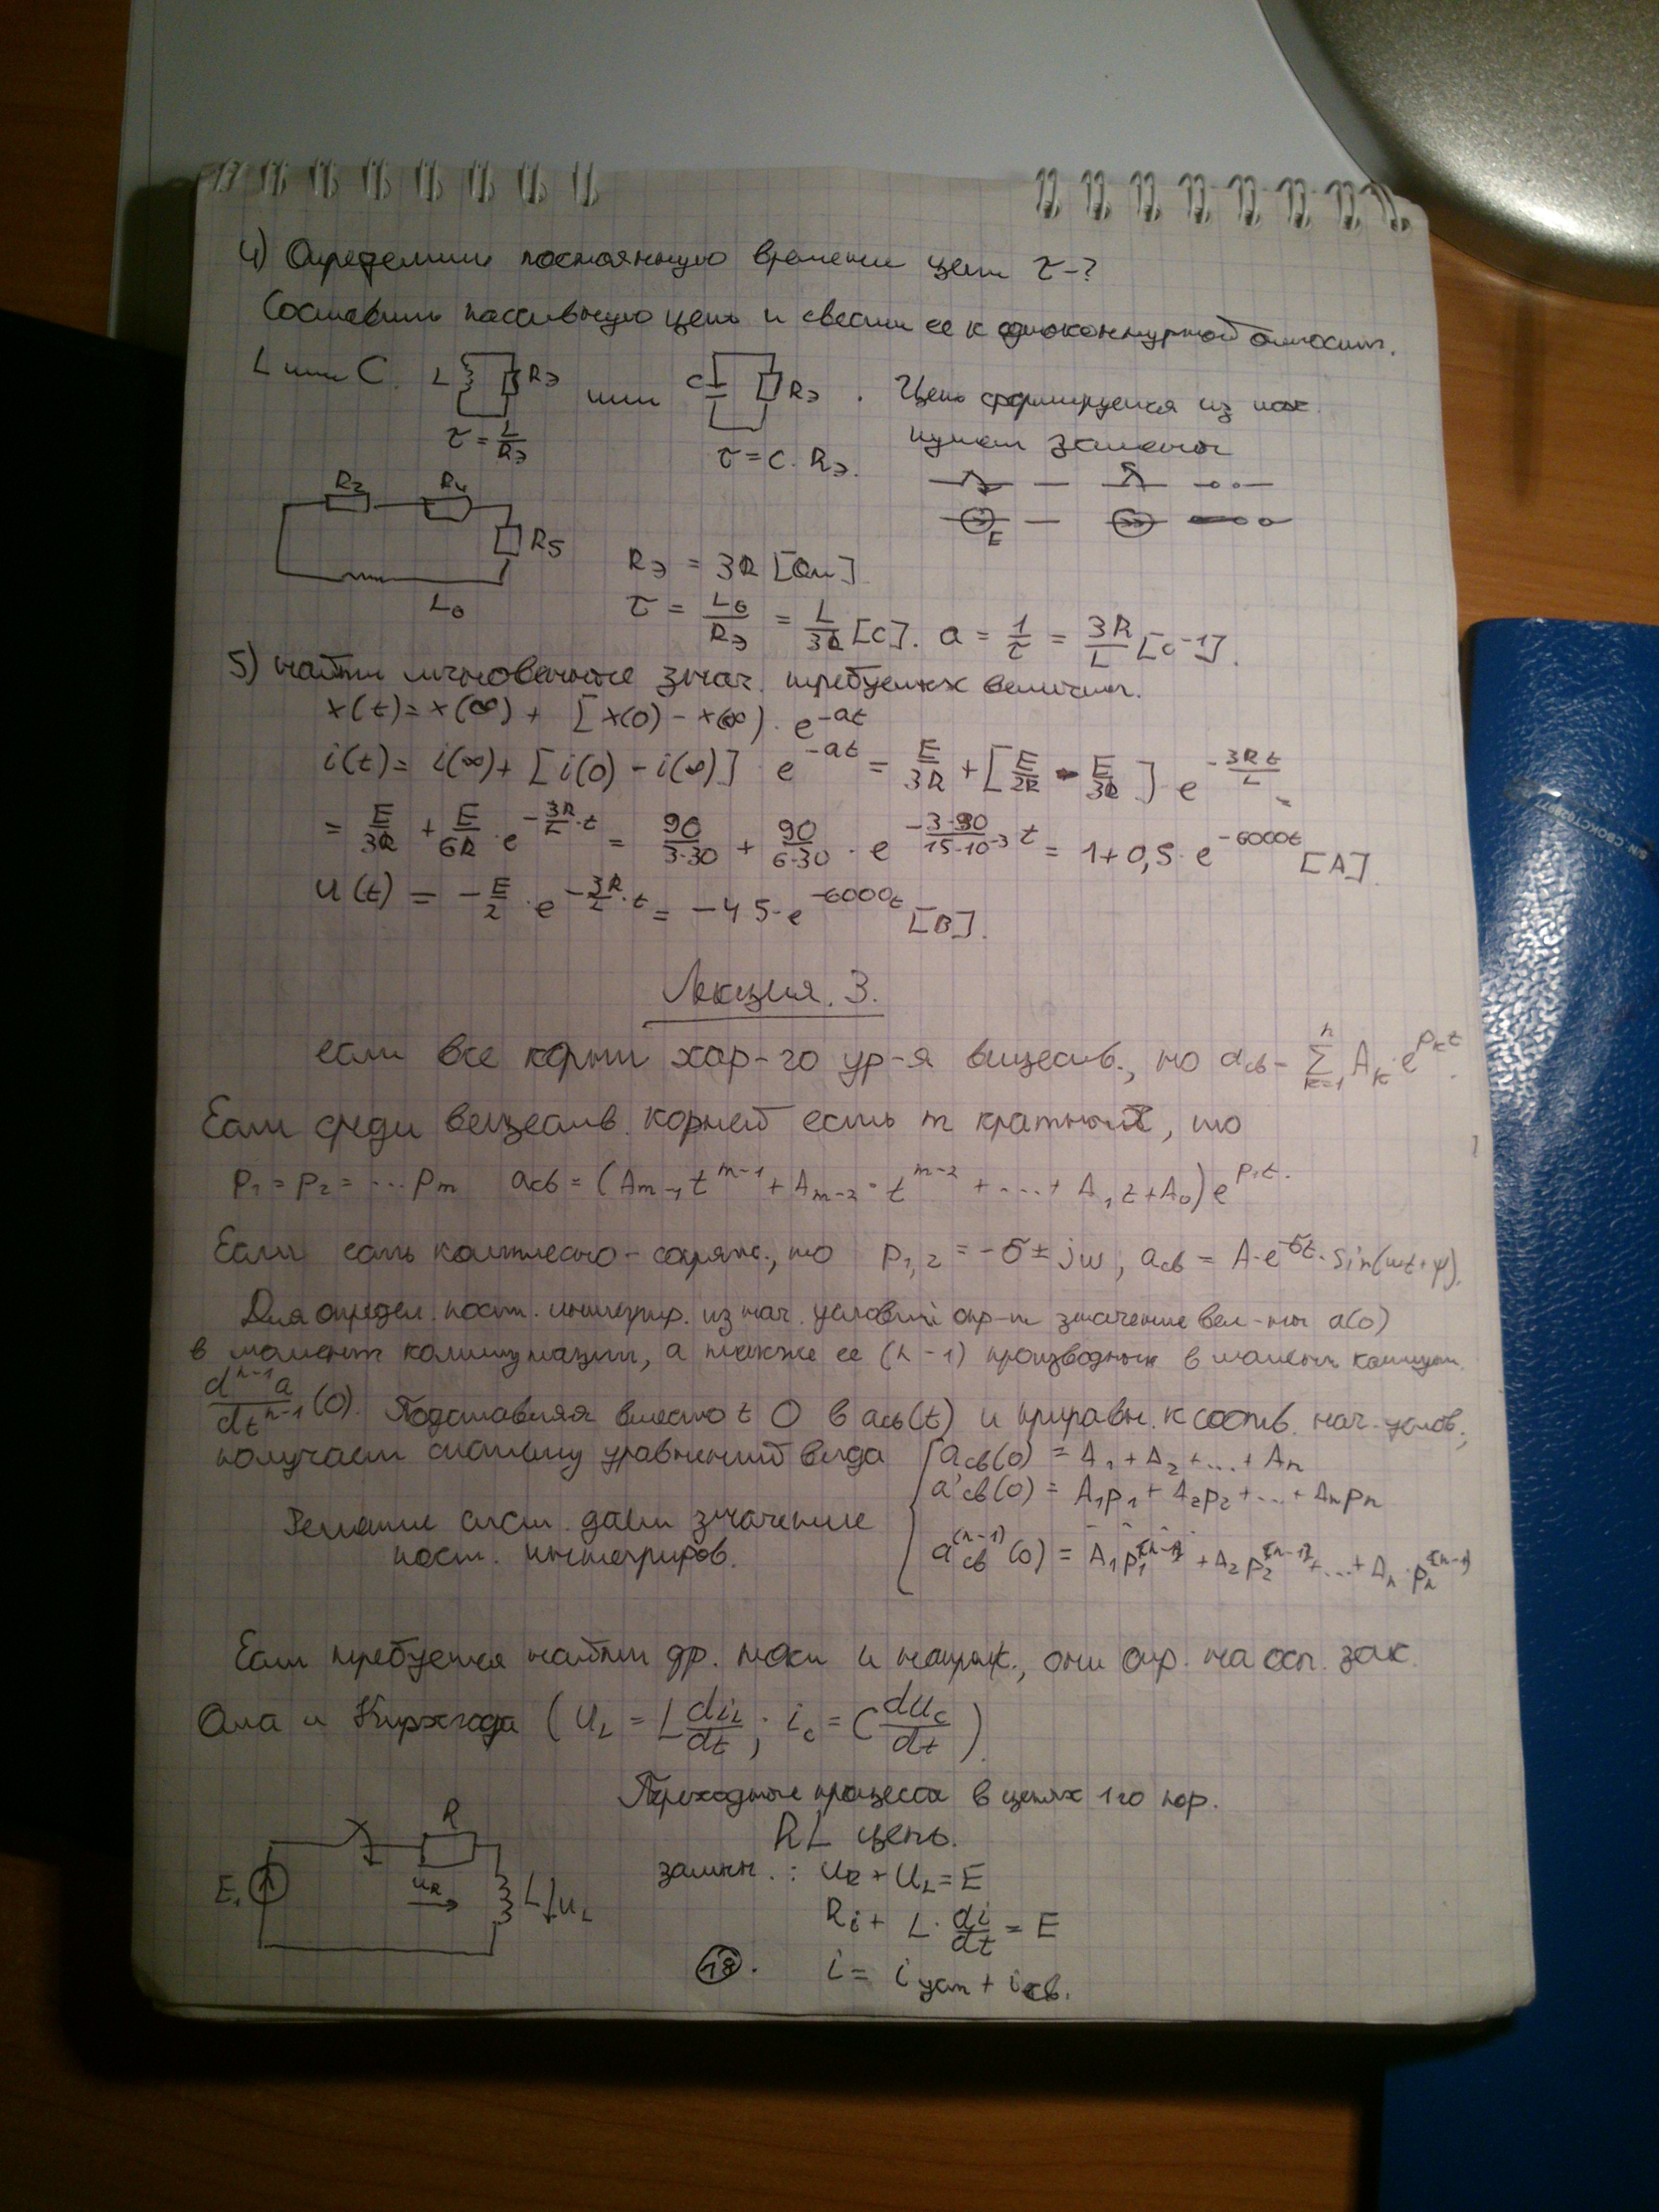 4) Определить постоянную времени цепи τ-?
Составить пассивную цепь и свести ее к одноконтурной относит.
L или C. L Rэ или C Rэ. Цепь формируется из исх.
путем замены
τ = L/Rэ τ = C · Rэ.
R2 R4
R5
L0
E
Rэ = 3R [Ом]
τ = L0/Rэ = L/3R [с]. a = 1/τ = 3R/L [с⁻¹].
5) Найти мгновенные знач. требуемых величин.
x(t) = x(∞) + [x(0) - x(∞)) · e^-at
i(t) = i(∞) + [i(0) - i(∞)] · e^-at = E/3R + [E/2R - E/3R] · e^-3Rt/L =
= E/3R + E/6R · e^-3R/L·t = 90/3·30 + 90/6·30 · e^-3·30/15·10^-3 t = 1+0,5·e^-6000t [A].
u(t) = -E/2 · e^-3R/L·t = -45·e^-6000t [В].
Лекция. 3.
если все корни хар-го ур-я веществ., то aсв - Σ k=1 n Ak·e^pkt.
Если среди веществ. корней есть m кратных, то
p1 = p2 = ... pm aсв = (Am-1 t^m-1 + Am-2 · t^m-2 + ... + A1t + A0) e^p1t.
Если есть комплексно-сопряж., то p1,2 = -δ ± jω, aсв = A·e^-δt · sin(ωt+ψ).
Для определ. пост. интегрир. из нач. условий опр-т значение вел-ны a(0)
в момент коммутации, а также ее (n-1) производных в момент коммут.
d^n-1 a/dt^n-1 (0). Подставляя вместо t 0 в aсв(t) и приравн. к соотв. нач. услов.,
получаем систему уравнений вида { aсв(0) = A1 + A2 + ... + An
a'св(0) = A1p1 + A2p2 + ... + Anpn
Решение сист. дает значение
пост. интегриров.
a^(n-1)св(0) = A1p1^(n-1) + A2p2^(n-1) + ... + An·pn^(n-1)
Если требуется найти др. токи и напряж., они опр. на осн. зак.
Ома и Кирхгофа (UL = L diL/dt; ic = C dUc/dt).
Переходные процессы в цепях 1го пор.
RL цепь.
замкн.: UR + UL = E
Ri + L · di/dt = E
i = iуст + iсв.
E1 R UR L UL
18.